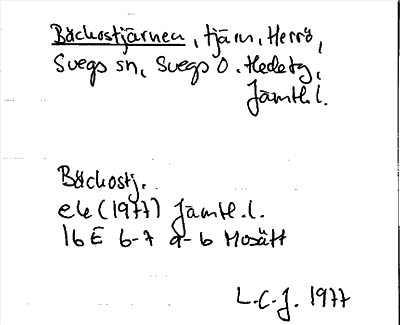 Bäckostjärnen, tjärn, Herrö,
Svegs sn, Svegs o. Hede tg,
Jämtl. l.
Bäckostj.
ek (1977) Jämtl. l.
16 E 6-7 a-b Mosätt
L.C.J. 1977